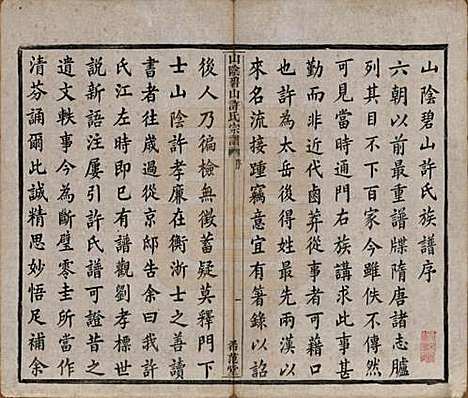 山陰碧山許氏族譜序
六朝以前最重譜牒隋唐諸志臚
列其目不下百家今雖佚不傳然
可見當時通門右族講求此事甚
勤而非近代鹵莽從事者可藉口
也許為太岳後得姓最先兩漢以
來名流接踵竊意宜有著錄以詒
山陰碧山許氏宗譜 序 一 希范堂
後人乃徧檢無徵蓄疑莫釋門下
士山陰許孝廉在衡浙士之善讀
書者往歲過從京邸告余曰我許
氏江左時即有譜觀劉孝標世
說新語注屢引許氏譜可證昔之
遺文軼事今為斷璧零圭所當作
清芬誦爾此誠精思妙悟足補余